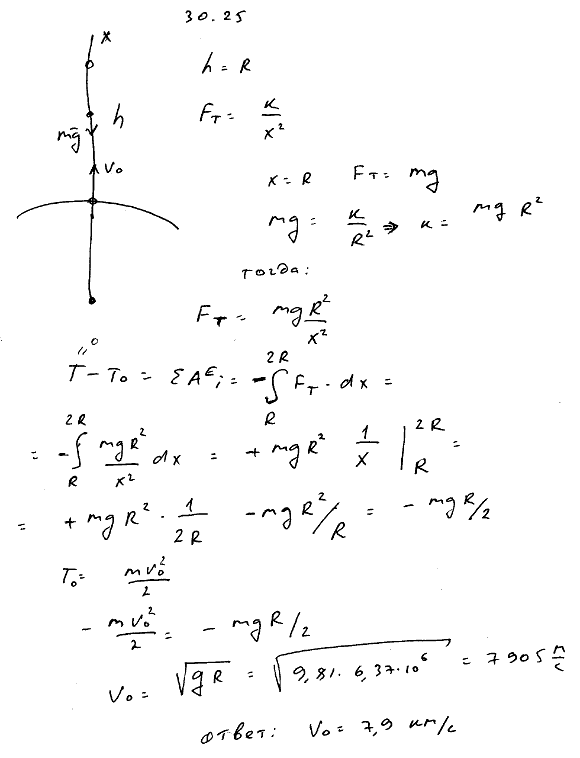 30.25
x
h = R
Fт = к/x²
mg h
v₀
x = R Fт = mg
mg = к/R² ⇒ к = mg R²
тогда:
Fт = mg R²/x²
"0
T - T₀ = ΣAᴱᵢ = -∫_R^{2R} Fт · dx =
= -∫_R^{2R} mgR²/x² dx = + mg R² 1/x |_R^{2R} =
= + mg R² · 1/2R - mg R²/R = - mg R/2
T₀ = mv₀²/2
- mv₀²/2 = - mg R/2
v₀ = √gR = √9,81 · 6,37·10⁶ = 7905 м/с
ответ: v₀ = 7,9 км/с